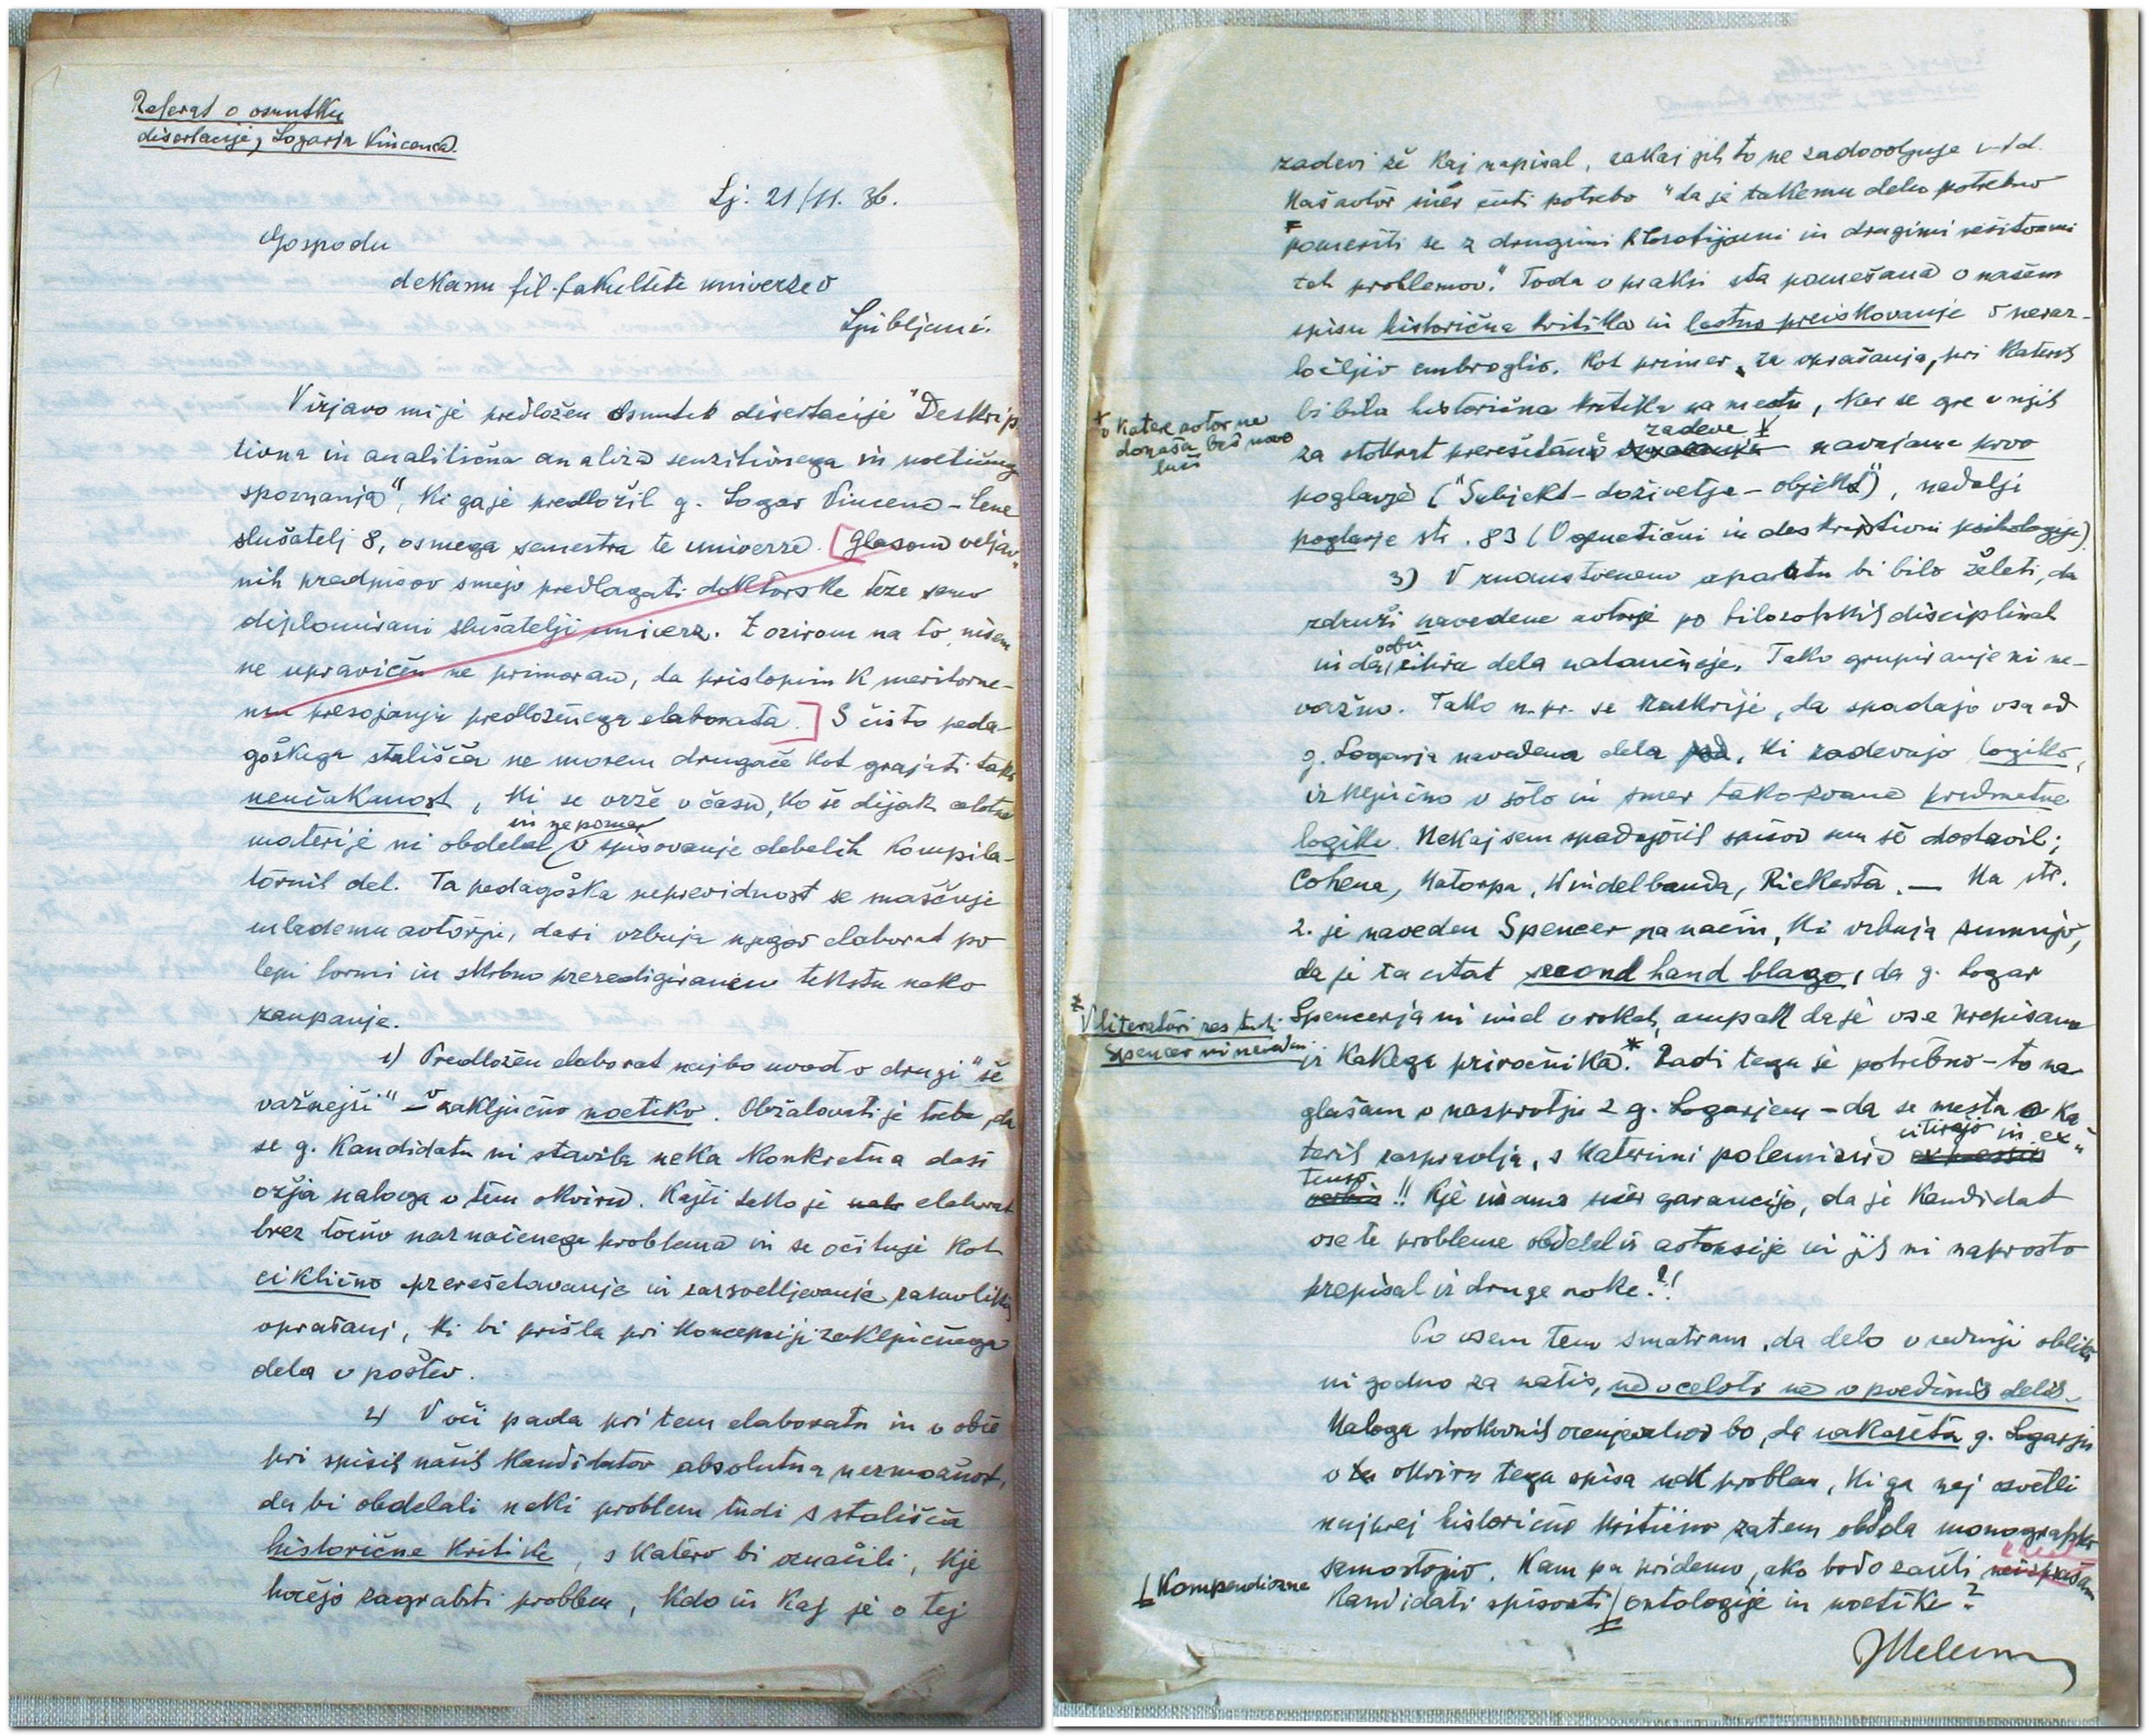 Referat o osnutku
disertacije, Logarja Vincenca.
Lj. 21/11. 36.
Gospodu
dekanu fil. fakultete univerze v
Ljubljani.
V izjavo mi je predložen osnutek disertacije "Deskrip
tivna in analitična analiza senzitivnega in noetičneg
spoznanja", ki ga je predložil g. Logar Vincenc-Cene
slušatelj 8, osmega semestra te univerze. [Glasom veljav
nih predpisov smejo predlagati doktorske teze samo
diplomirani slušatelji univerz. Z ozirom na to, nisem
ne upravičen ne primoran, da pristopim k meritorne-
mu presojanju predloženega elaborata.] S čisto peda-
goškega stališča ne morem drugače kot grajati tako
neučakanost, ki se vrže v času, ko še dijak celotne
materije ni obdelal in ne pozna, v spisovanje debelih kompila-
tornih del. Ta pedagoška neprevidnost se maščuje
mlademu avtorju, dasi vzbuja njegov elaborat po
lepi formi in skrbno preredigiranem tekstu neko
zaupanje.
1) Predložen elaborat naj bo uvod v drugi "še
važnejši" – zaključno noetiko. Obžalovati je treba, da
se g. kandidatu ni stavila neka konkretna dasi
ožja naloga v tem okviru. Kajti tako je elaborat
brez točno naznačenega problema in se očituje kot
ciklično prerešetavanje in razsvetljevanje raznolikih
vprašanj, ki bi prišla pri koncepciji zaključnega
dela v poštev.
2) V oči pada pri tem elaboratu in v obče
pri spisih naših kandidatov absolutna nezmožnost,
da bi obdelali neki problem tudi s stališča
historične kritike, s katero bi označili, kje
hočejo zagrabiti problem, kdo in kaj je o tej
zadevi že kaj napisal, zakaj jih to ne zadovoljuje i-t-d.
Naš avtor sicer čuti potrebo "da je takemu delu potrebno
pomeriti se z drugimi filozofijami in drugimi rešitvami
teh problemov." Toda v praksi sta pomešana v našem
spisu historična kritika in lastno preiskovanje v neraz-
ločljiv embroglio. Kot primer, za vprašanja, pri katerih
bi bila historična kritika na mestu, ker se gre v njih
za stokrat prerešetane zadeve navajamo prvo
+ o katere avtor ne
donaša baš novo
luči
poglavje ("Subjekt-doživetje-objekt"), nadalje
poglavje str. 83 (O genetični in deskriptivni psihologiji).
3) V znanstvenem aparatu bi bilo želeti, da
združi navedene avtorje po filozofskih disciplinah
in da citira dela natančneje. Tako grupiranje ni ne-
važno. Tako n.pr. se razkrije, da spadajo vsa od
g. Logarja navedena dela, ki zadevajo logiko,
izključno v šolo in smer tako-zvane predmetne
logike. Nekaj sem spadajočih spisov sem še dostavil;
Cohena, Natorpa, Windelbanda, Rickerta. — Na str.
2. je naveden Spencer na način, ki vzbuja sumnjo,
da je ta citat second hand blago, da g. Logar
Spencerja ni imel v rokah, ampak da je vse prepisano
* V literaturi res tudi
Spencer ni naveden
iz kakega priročnika.* Radi tega je potrebno – to na-
glašam v nasprotju z g. Logarjem – da se mesta o ka-
terih razpravlja, s katerimi polemizira citirajo in ex-
tenso!! Kje imamo sicer garancijo, da je kandidat
vse te probleme obdelal iz avtopsije in jih ni naprosto
prepisal iz druge roke?!
Po vsem tem smatram, da delo v sedanji obliki
ni godno za natis, ne v celoti ne v poedinih delih.
Naloga strokovnih ocenjevalcev bo, da nakažeta g. Logarju
v okviru tega spisa nek problem, ki ga naj osvetli
najprej historično kritično zatem obdela monografsko
samostojno. Kam pa pridemo, ako bodo začeli
kandidati spisovati ontologije in noetike?
Kompendiozne